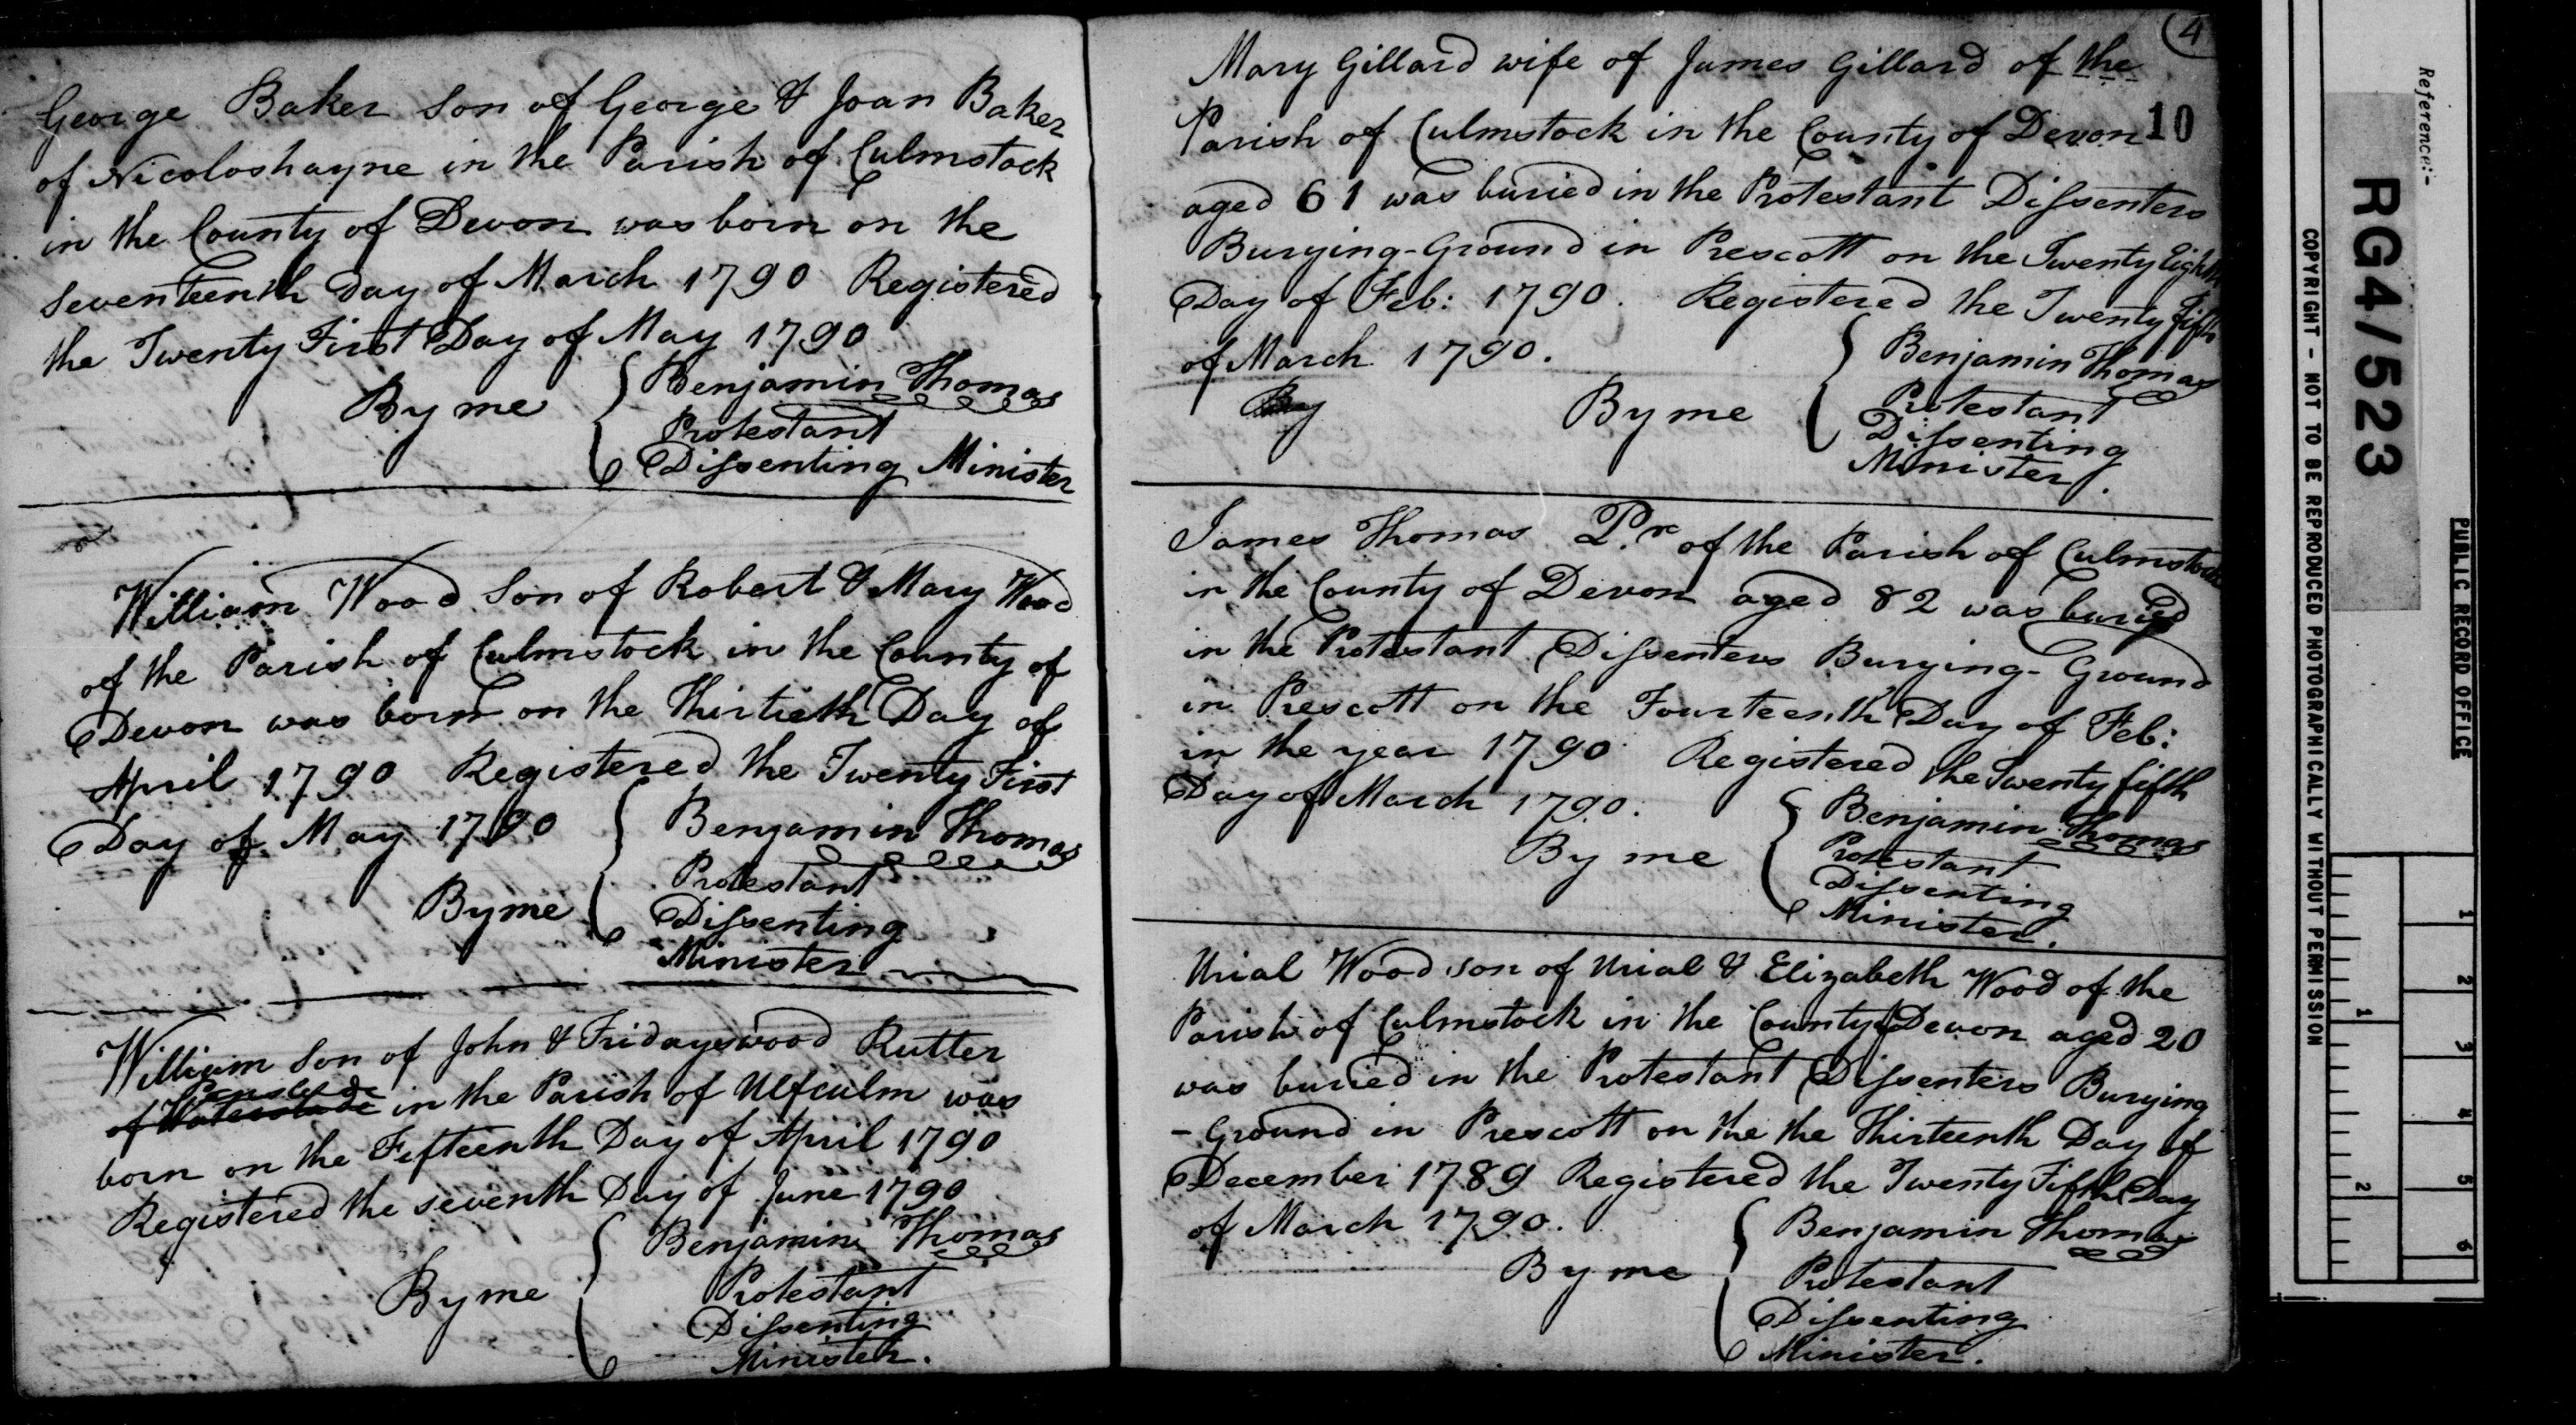 George Baker Son of George & Joan Baker
of Nicoloshayne in the Parish of Culmstock
in the County of Devon was born on the
Seventeenth Day of March 1790 Registered
the Twenty First Day of May 1790
By me
Benjamin Thomas
Protestant
Dissenting Minister
William Wood Son of Robert & Mary Wood
of the Parish of Culmstock in the County of
Devon was born on the Thirtieth Day of
April 1790 Registered the Twenty First
Day of May 1790
By me
Benjamin Thomas
Protestant
Dissenting
Minister
William Son of John & Fridayswood Rutter
of in the Parish of Ulfculm was
born on the Fifteenth Day of April 1790
Registered the seventh Day of June 1790
By me
Benjamin Thomas
Protestant
Dissenting
Minister.
4
Mary Gillard wife of James Gillard of the
Parish of Culmstock in the County of Devon 10
aged 61 was buried in the Protestant Dissenters
Burying-Ground in Prescott on the Twenty Eighth
Day of Feb: 1790. Registered the Twenty fifth
of March 1790.
By
By me
Benjamin Thomas
Protestant
Dissenting
Minister.
James Thomas of the Parish of Culmstock
in the County of Devon aged 82 was buried
in the Protestant Dissenters Burying-Ground
in Prescott on the Fourteenth Day of Feb:
in the year 1790 Registered the Twenty fifth
Day of March 1790.
By me
Benjamin Thomas
Protestant
Dissenting
Minister.
Urial Wood son of Urial & Elizabeth Wood of the
Parish of Culmstock in the County of Devon aged 20
was buried in the Protestant Dissenters Burying
-Ground in Prescott on the the Thirteenth Day of
December 1789 Registered the Twenty Fifth Day
of March 1790.
By me
Benjamin Thomas
Protestant
Dissenting
Minister.
Reference:-
RG4/523
PUBLIC RECORD OFFICE
COPYRIGHT - NOT TO BE REPRODUCED PHOTOGRAPHICALLY WITHOUT PERMISSION
1 2 3 4 5 6
1 2